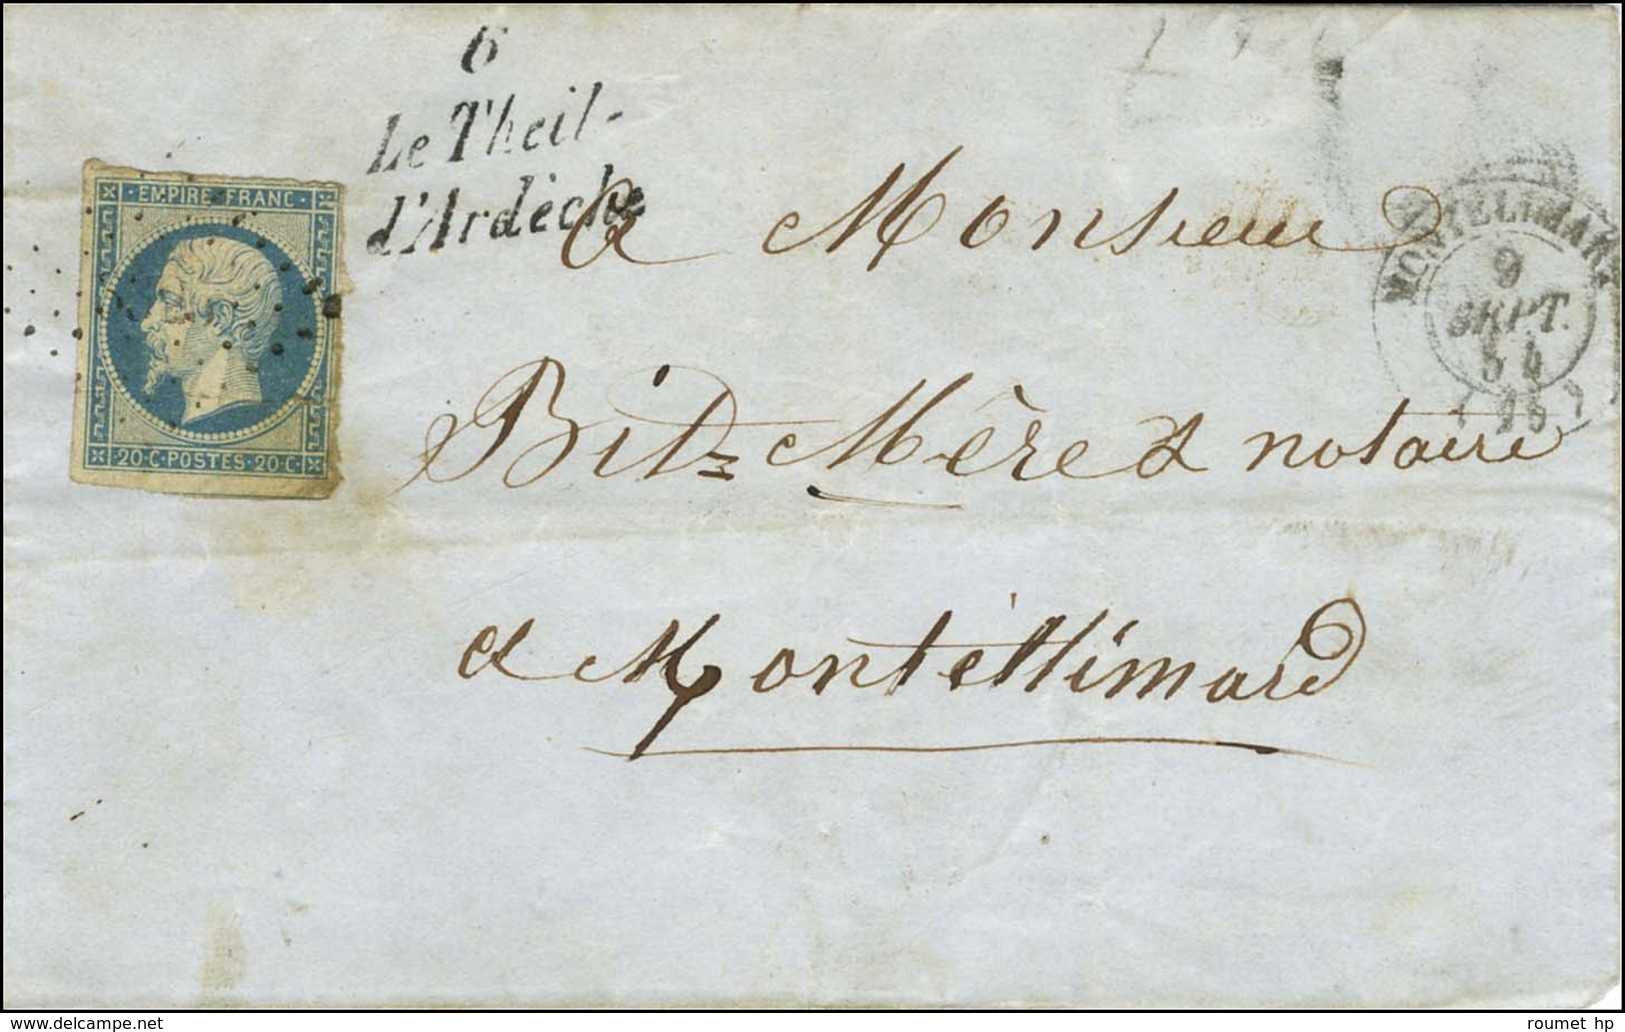 6
Le Theil-
d'Ardèche
EMPIRE FRANC
20·C·POSTES·20·C
MONTELIMART
9
SEPT.
54
(25)
a Monsieur
Bit Mère & notaire
a Montellimard
roumet hp